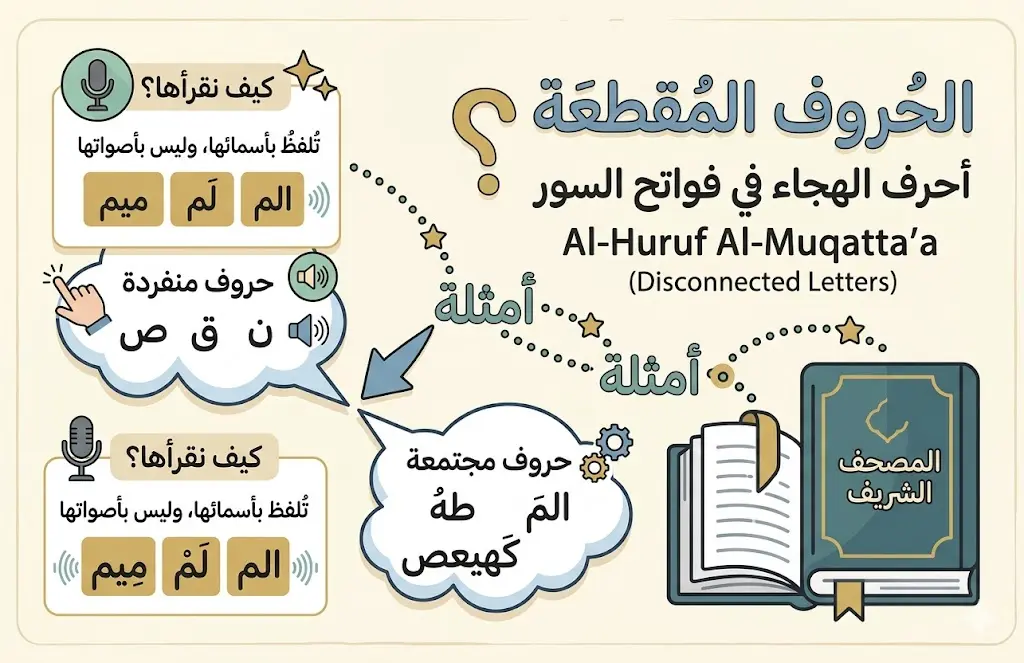 الحُروف المُقطعَة؟
أحرف الهجاء في فواتح السور
Al-Huruf Al-Muqatta’a
(Disconnected Letters)
كيف نقرأها؟
تُلفظُ بأسمائها، وليس بأصواتها
الم لَم ميم
حروف منفردة
ن ق ص
أمثلة
أمثلة
حروف مجتمعة
المَ طهُ
كَهيعص
كيف نقرأها؟
تُلفظ بأسمائها، وليس بأصواتها
الم لَمْ مِيم
المصحف
الشريف